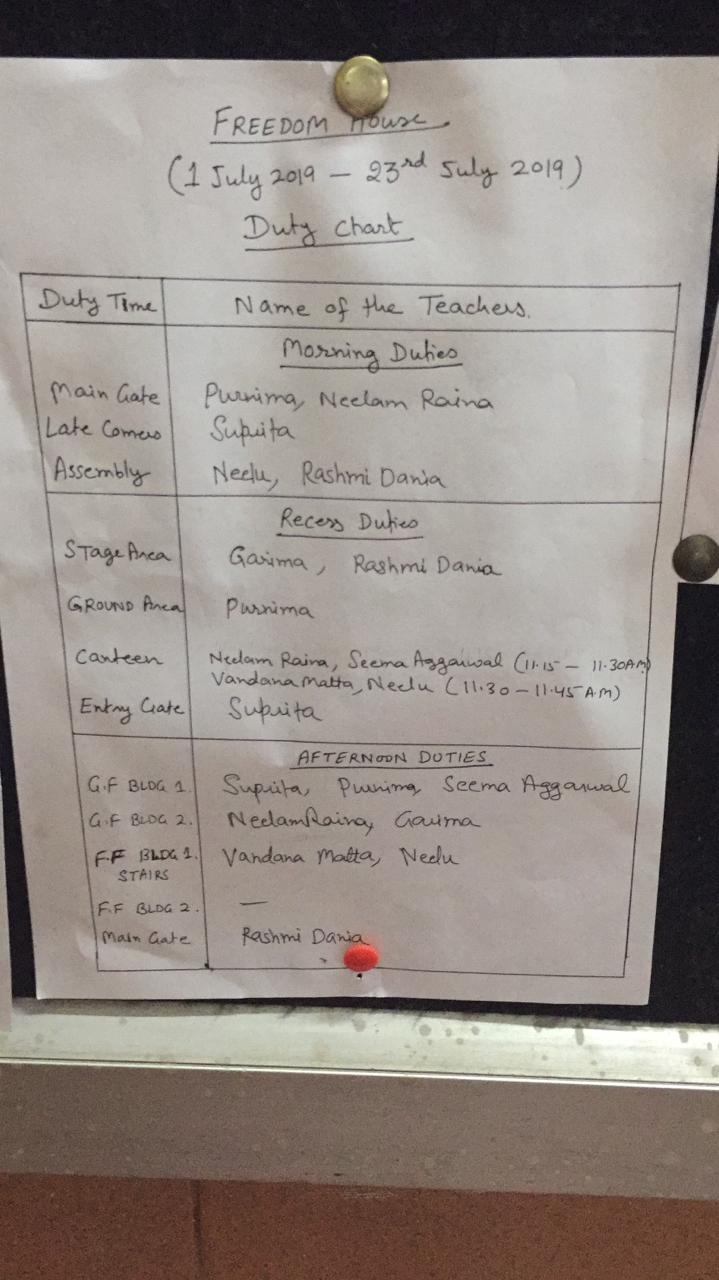 FREEDOM House
(1 July 2019 – 23rd July 2019)
Duty Chart
Duty Time Name of the Teachers.
Morning Duties
Main Gate Purnima, Neelam Raina
Late Comers Suprita
Assembly Neelu, Rashmi Dania
Recess Duties
STage Area Garima, Rashmi Dania
GROUND Area Purnima
Canteen Neelam Raina, Seema Aggarwal (11.15 – 11.30AM)
Vandana Matta, Neelu (11.30 – 11.45 A.M)
Entry Gate Suprita
AFTERNOON DUTIES
G.F BLDG 1. Suprita, Purnima, Seema Aggarwal
G.F BLDG 2. Neelam Raina, Garima
F.F BLDG 1. Vandana Matta, Neelu
STAIRS
F.F BLDG 2. —
Main Gate Rashmi Dania